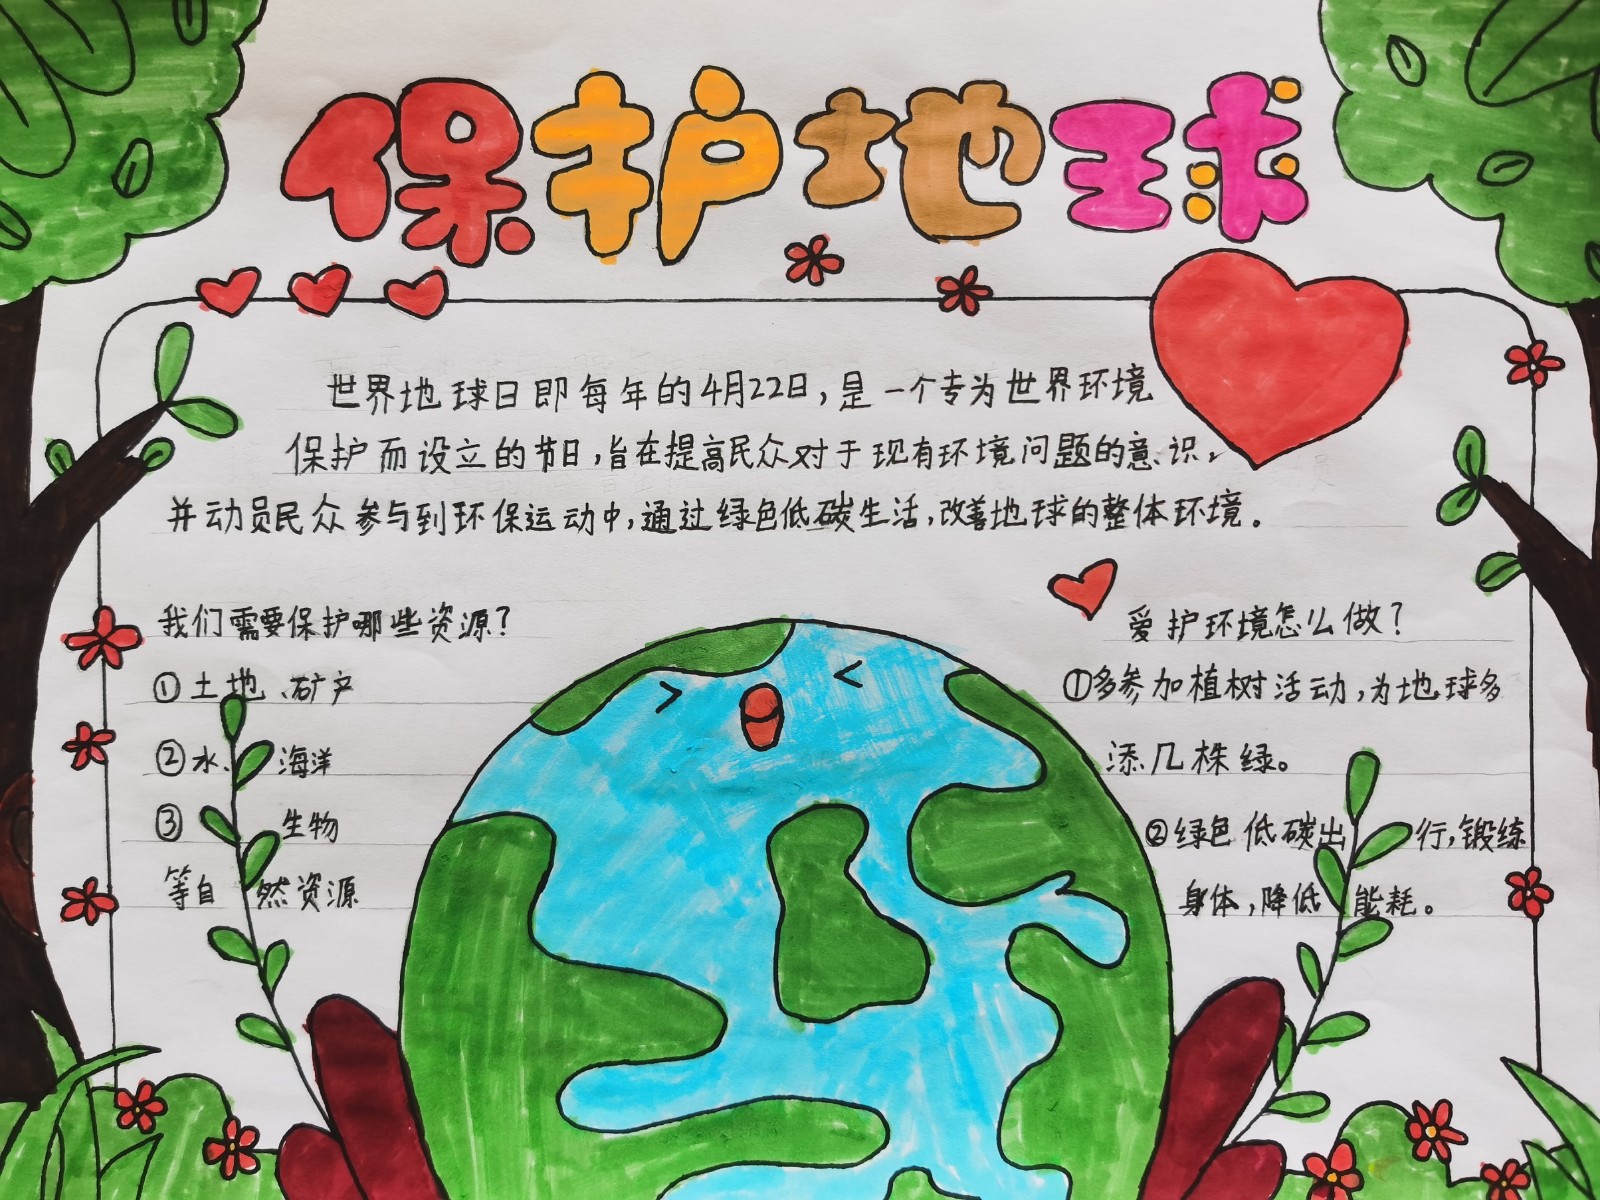 保护地球
世界地球日即每年的4月22日,是一个专为世界环境
保护而设立的节日,旨在提高民众对于现有环境问题的意识,
并动员民众参与到环保运动中,通过绿色低碳生活,改善地球的整体环境。
我们需要保护哪些资源?
①土地、矿产
②水、海洋
③生物
等自然资源
爱护环境怎么做?
①多参加植树活动,为地球多
添几株绿。
②绿色低碳出行,锻练
身体,降低能耗。